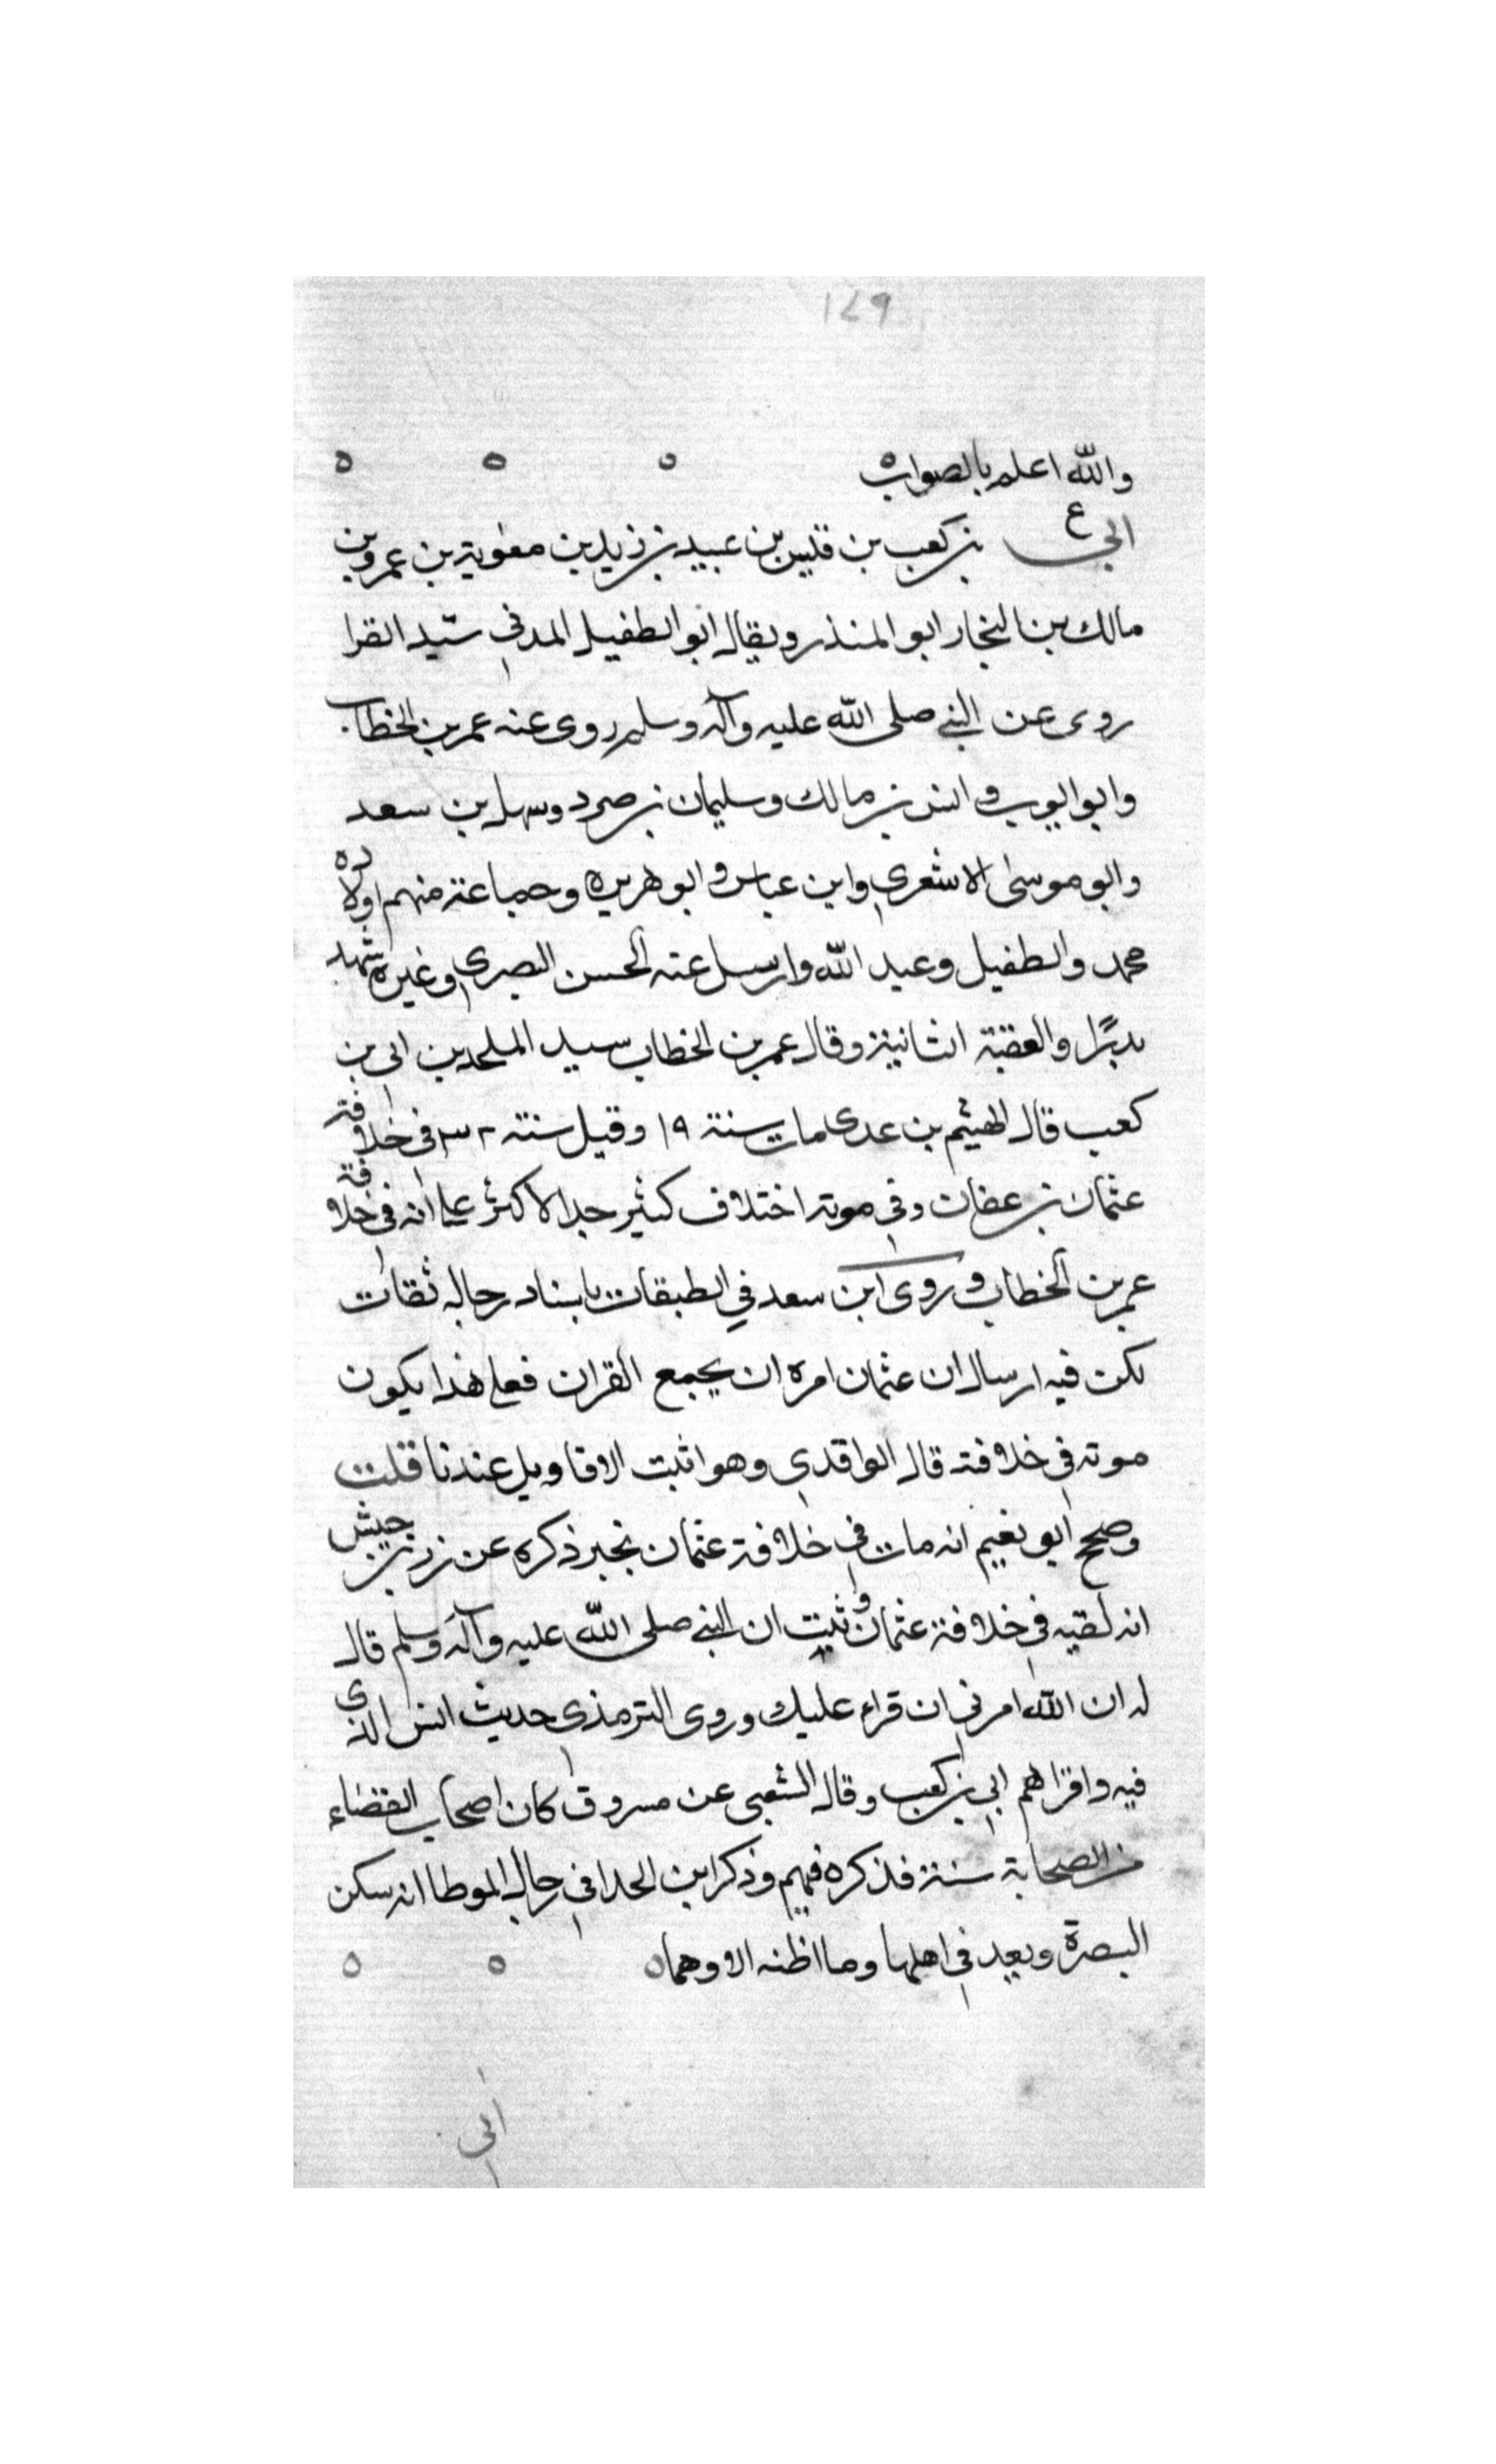 ١٤٩
والله اعلم بالصواب ه ه ه ه
ع
ابي بن كعب بن قيس بن عبيد بن زيد بن معوية بن عمرو بن
مالك بن النجار ابو المنذر ويقال ابو الطفيل المدني سيد القرا
روى عن النبي صلى الله عليه وآله وسلم روى عنه عمر بن الخطاب
وابو ايوب وانس بن مالك وسليمان بن صرد وسهل بن سعد
وابو موسى الاشعري وابن عباس وابو هريره وجماعة منهم اولاده
محمد والطفيل وعبد الله وارسل عنه الحسن البصري وغيره شهد
بدرًا والعقبة الثانية وقال عمر بن الخطاب سيد المسلمين ابي بن
كعب قال الهيثم بن عدى مات سنة ١٩ وقيل سنة ٣٢ في خلافة
عثمان بن عفان وفي موته اختلاف كثير جدا الاكثر على انه في خلافة
عمر بن الخطاب وروى ابن سعد في الطبقات باسناد رجاله ثقات
لكن فيه ارسال ان عثمان امره ان يجمع القران فعلى هذا يكون
موته في خلافته قال الواقدي وهو اثبت الاقاويل عندنا قلت
وصحح ابو نعيم انه مات في خلافة عثمان بخبر ذكره عن زر بن حبيش
انه لقيه في خلافة عثمان وثبت ان النبي صلى الله عليه وآله وسلم قال
له ان الله امرني ان قراء عليك وروى الترمذى حديث انس الذى
فيه واقراهم ابي بن كعب وقال الشعبى عن مسروق كان اصحاب القضاء
من الصحابة ستة فذكره فيهم وذكر ابن الحذا في رجال الموطا انه سكن
البصرة ويعد في اهلها وما اظنه الا وهما ه ه ه
ابي